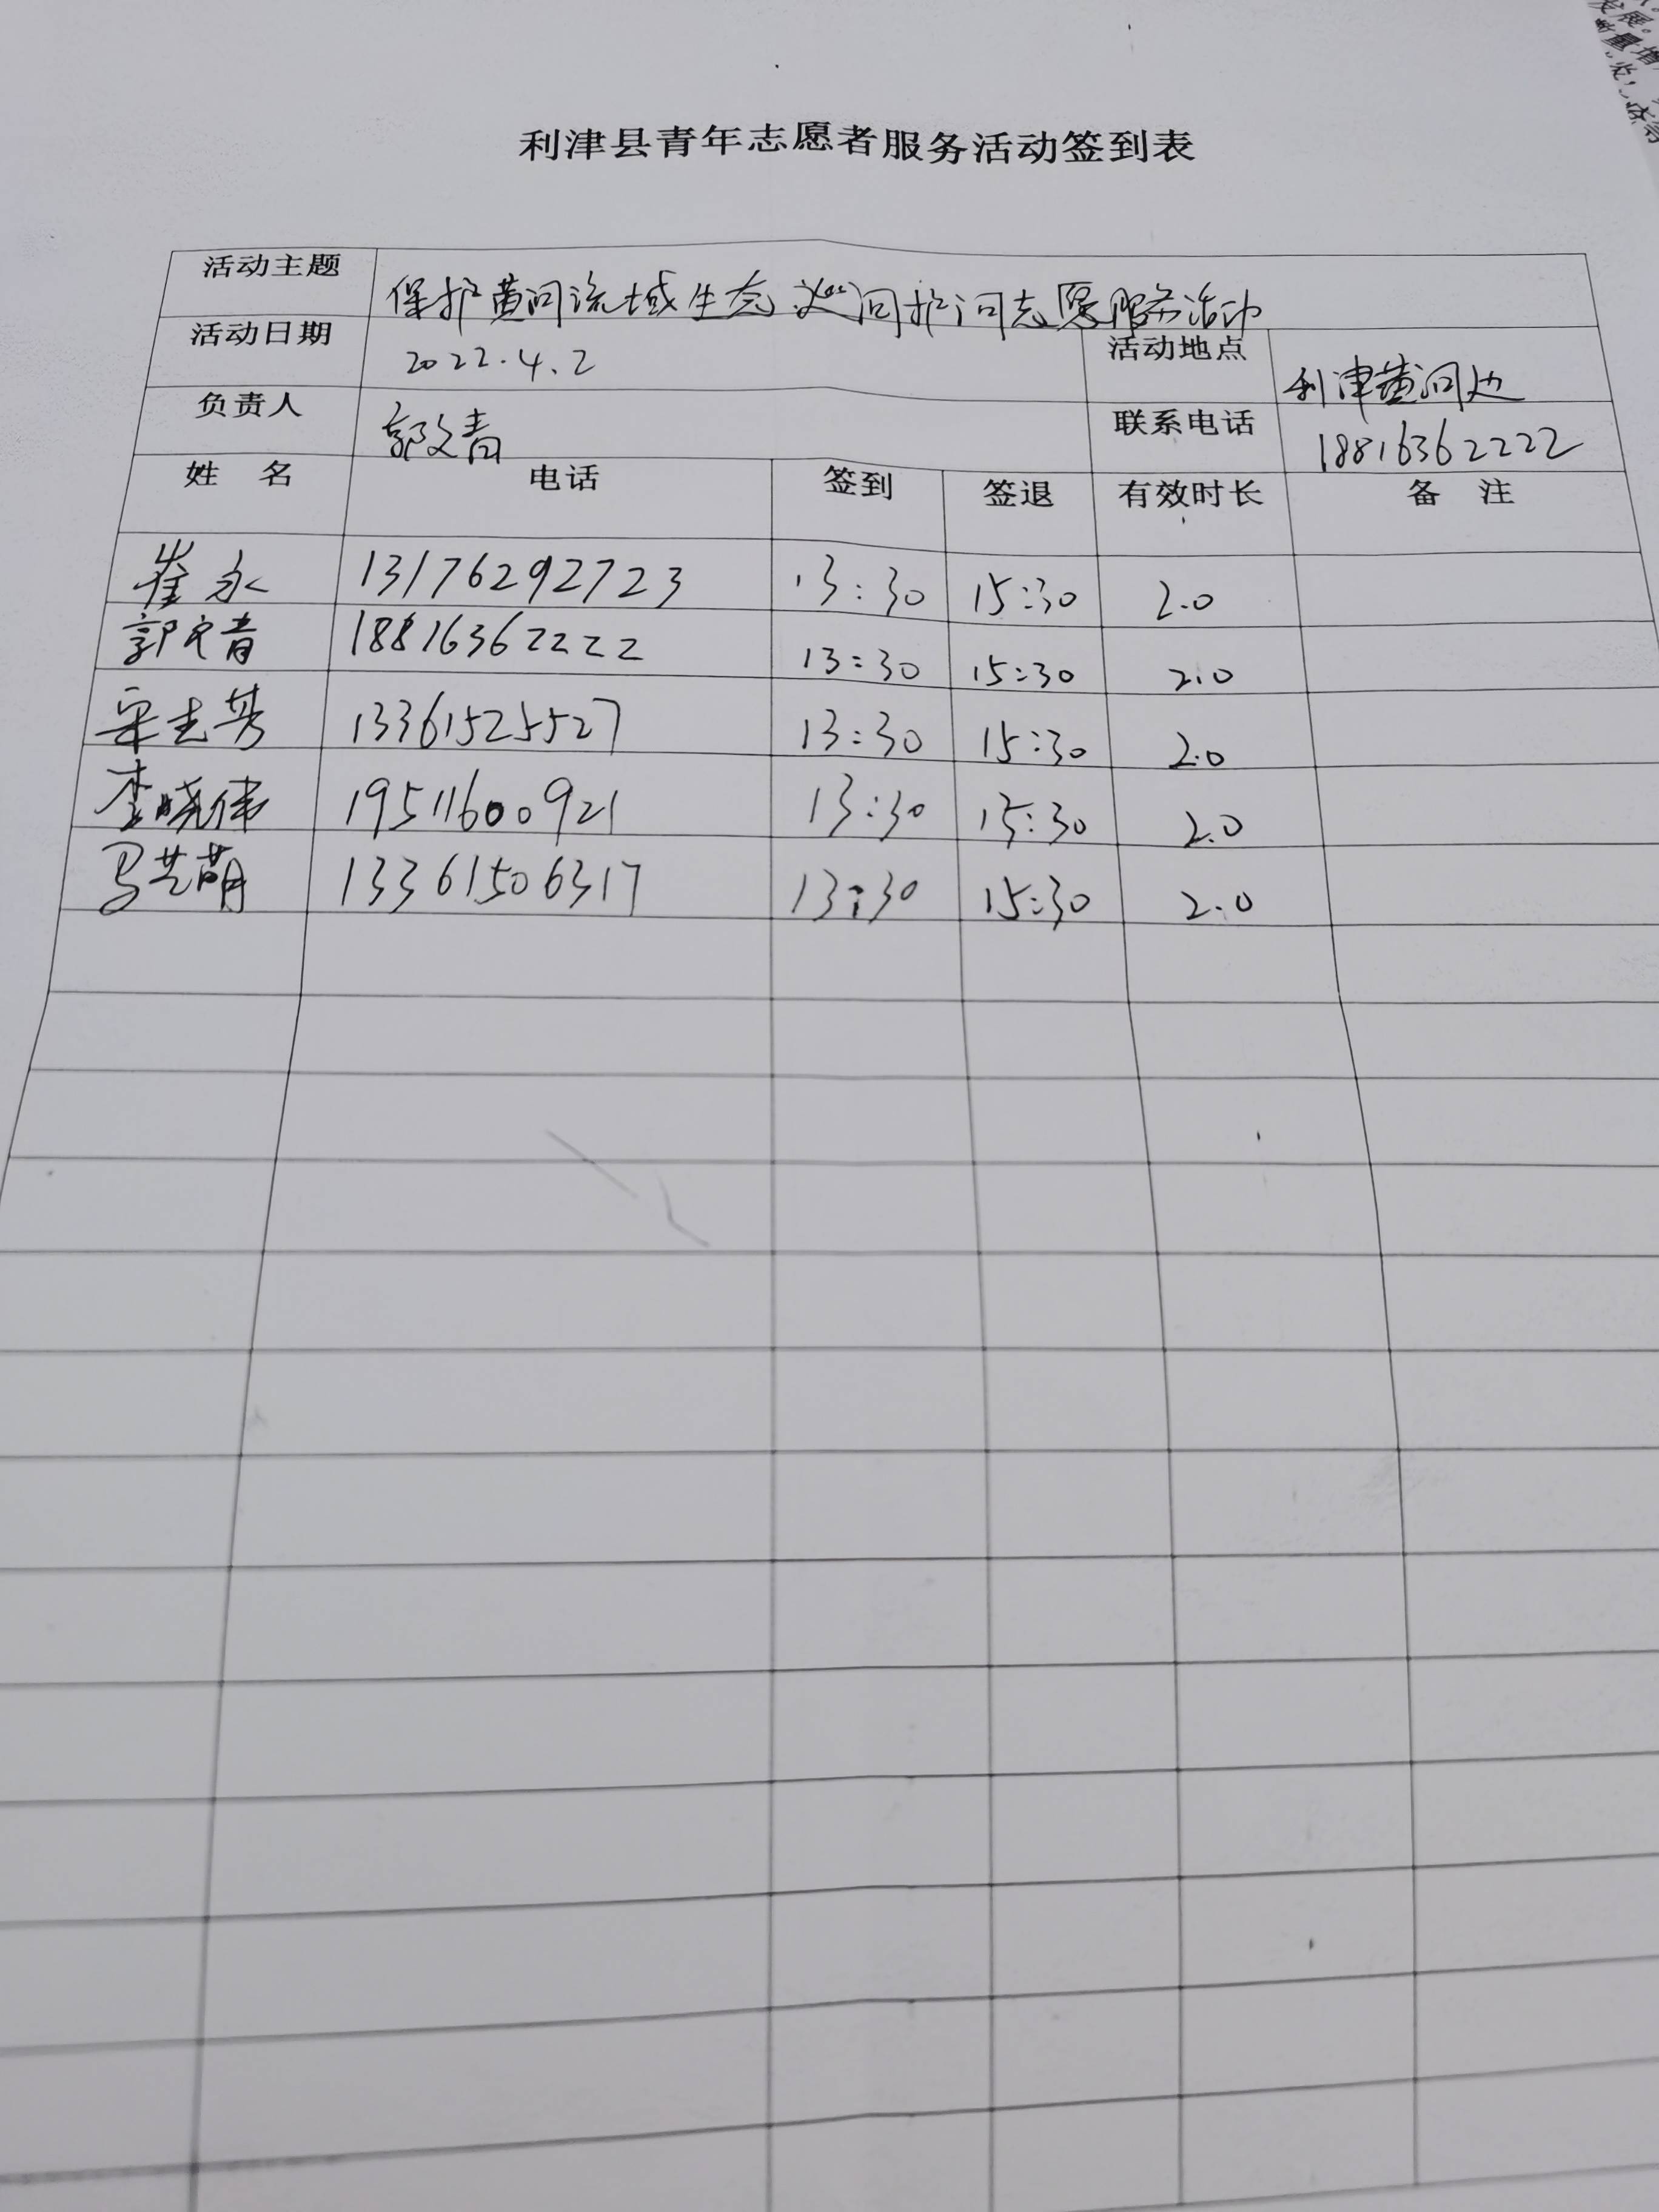 利津县青年志愿者服务活动签到表
活动主题 保护黄河流域生态 巡河护河志愿服务活动
活动日期 2022.4.2 活动地点 利津黄河边
负责人 郭文青 联系电话 18816362222
姓 名 电话 签到 签退 有效时长 备 注
崔永 13176292723 13:30 15:30 2.0
郭文青 18816362222 13:30 15:30 2.0
宋志芳 13361525527 13:30 15:30 2.0
李晓伟 19511600921 13:30 15:30 2.0
马芸萌 13361506317 13:30 15:30 2.0
发展。